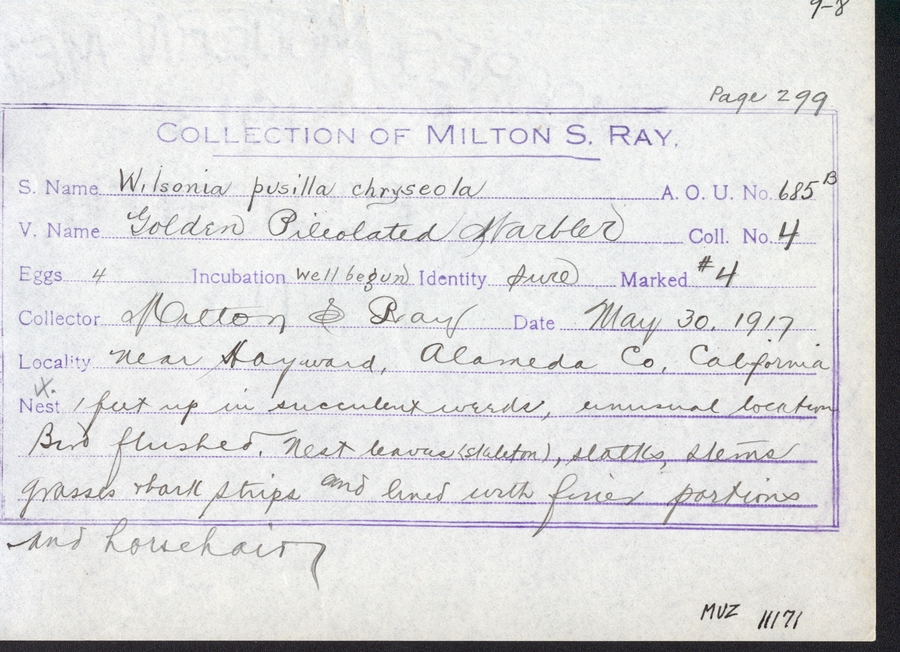 9-8
Page 299
COLLECTION OF MILTON S. RAY.
S. Name Wilsonia pusilla chryseola A. O. U. No. 685 B
V. Name Golden Pileolated Warbler Coll. No. 4
Eggs 4 Incubation well begun Identity sure Marked #4
Collector Milton S Ray Date May 30, 1917
Locality near Hayward, Alameda Co, California
Nest 1 feet up in succulent weeds, unusual location
Bird flushed. Nest leaves (skeleton), stalks, stems
grasses bark strips and lined with finer portions
and horsehair
MVZ 11171